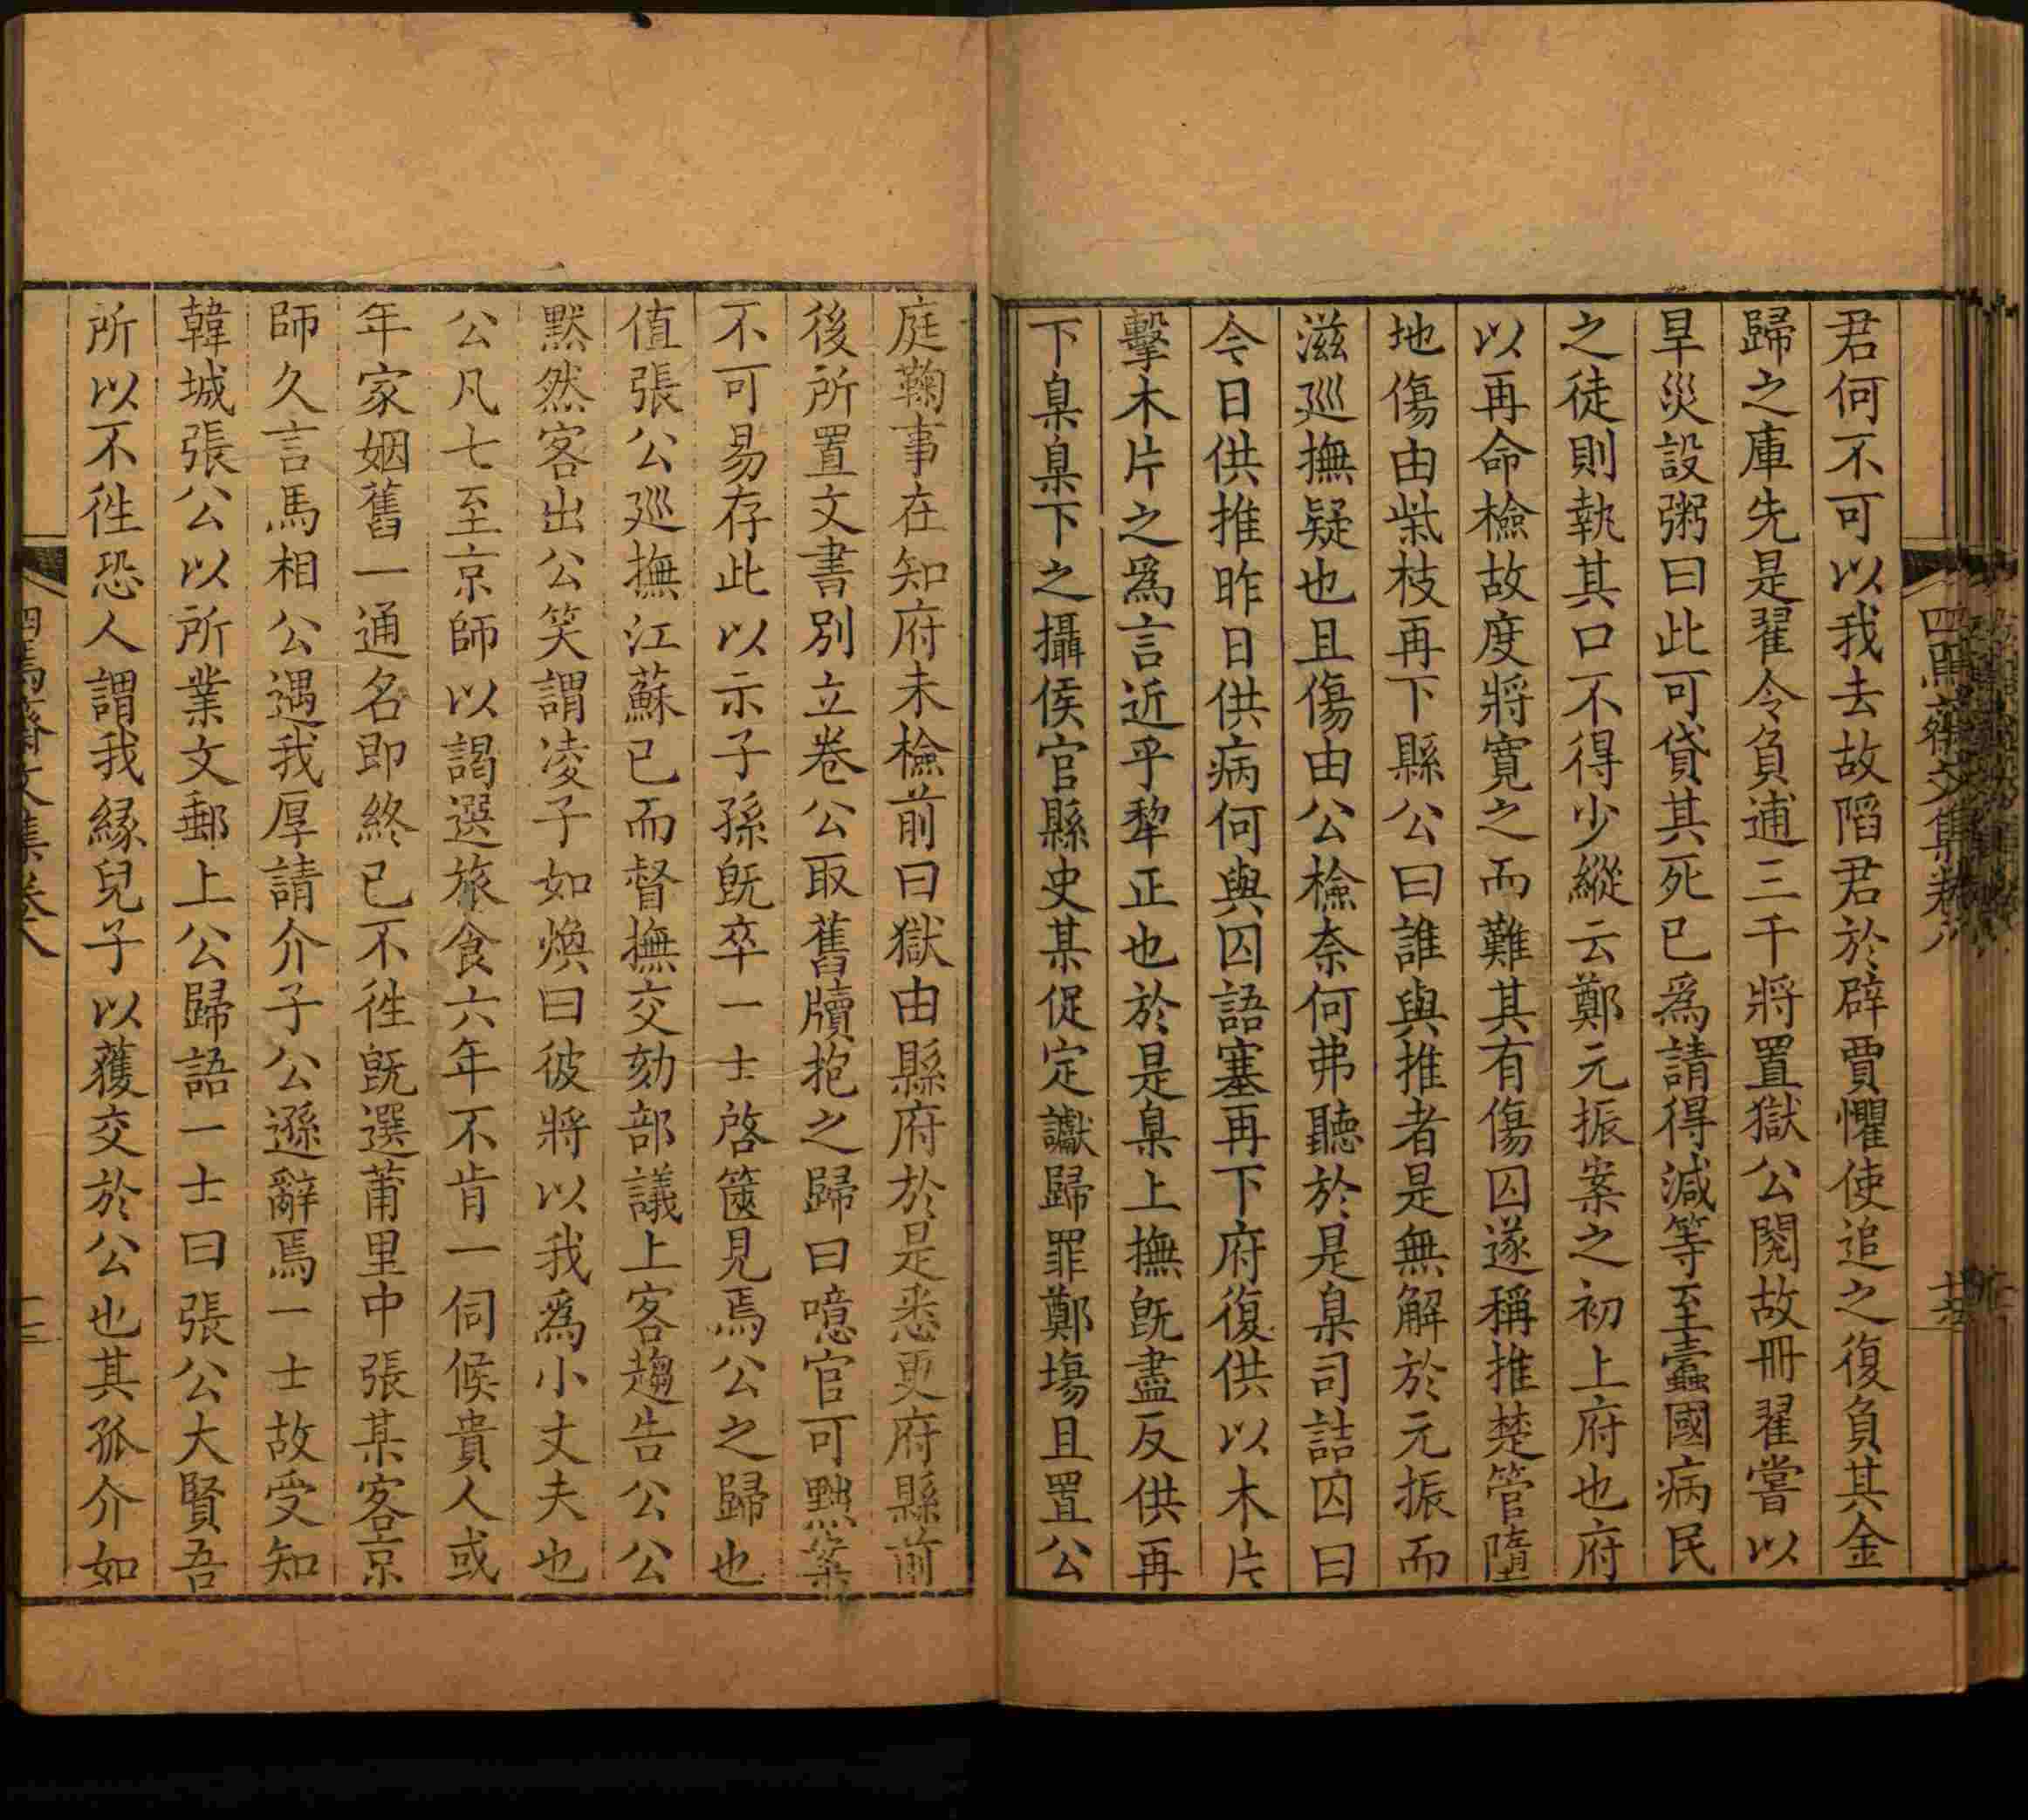 君何不可以我去故陷君於辟賈懼使追之復負其金
歸之庫先是翟令負逋三千將置獄公閱故冊翟嘗以
旱災設粥曰此可貸其死已為請得減等至蠹國病民
之徒則執其口不得少縱云鄭元振案之初上府也府
以再命檢故度將寬之而難其有傷囚遂稱推楚管墮
地傷由柴枝再下縣公曰誰與推者是無解於元振而
滋巡撫疑也且傷由公檢奈何弗聽於是臬司詰囚曰
今日供推昨日供病何與囚語塞再下府復供以木片
擊木片之為言近乎犂正也於是臬上撫既盡反供再
下臬臬下之攝侯官縣史某促定讞歸罪鄭塲且置公
庭鞠事在知府未檢前曰獄由縣府於是悉更府縣前
後所置文書別立卷公取舊牘抱之歸曰噫官可黜案
不可易存此以示子孫既卒一士啓篋見焉公之歸也
值張公巡撫江蘇已而督撫交劾部議上客趨告公公
黙然客出公笑謂凌子如煥曰彼將以我為小丈夫也
公凡七至京師以謁選旅食六年不肯一伺候貴人或
年家姻舊一通名即終已不徃既選莆里中張某客京
師久言馬相公遇我厚請介子公遜辭焉一士故受知
韓城張公以所業文郵上公歸語一士曰張公大賢吾
所以不徃恐人謂我緣兒子以獲交於公也其孤介如
四焉齋文集卷八